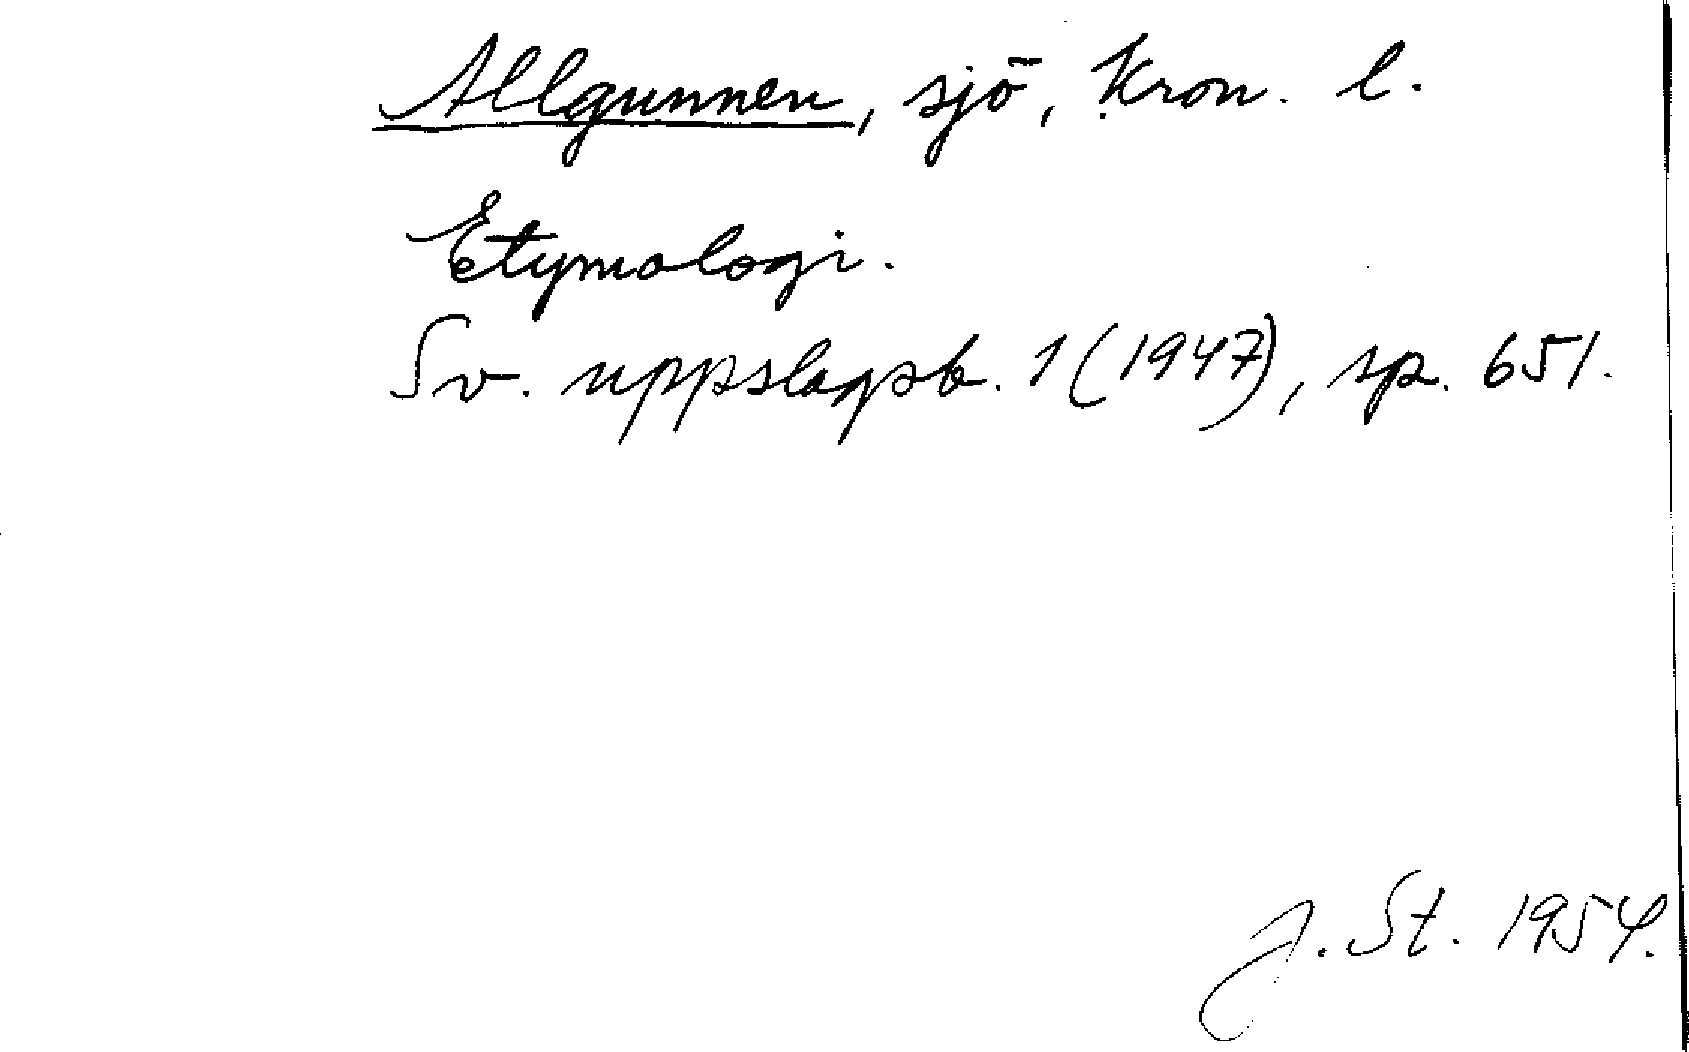 Allgunnen, sjö, Kron. l.
Etymologi.
Sv. uppslagsb. 1 (1947), sp. 651.
J. St. 1954.